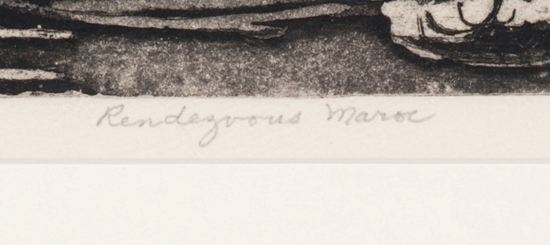 Rendezvous Maroc